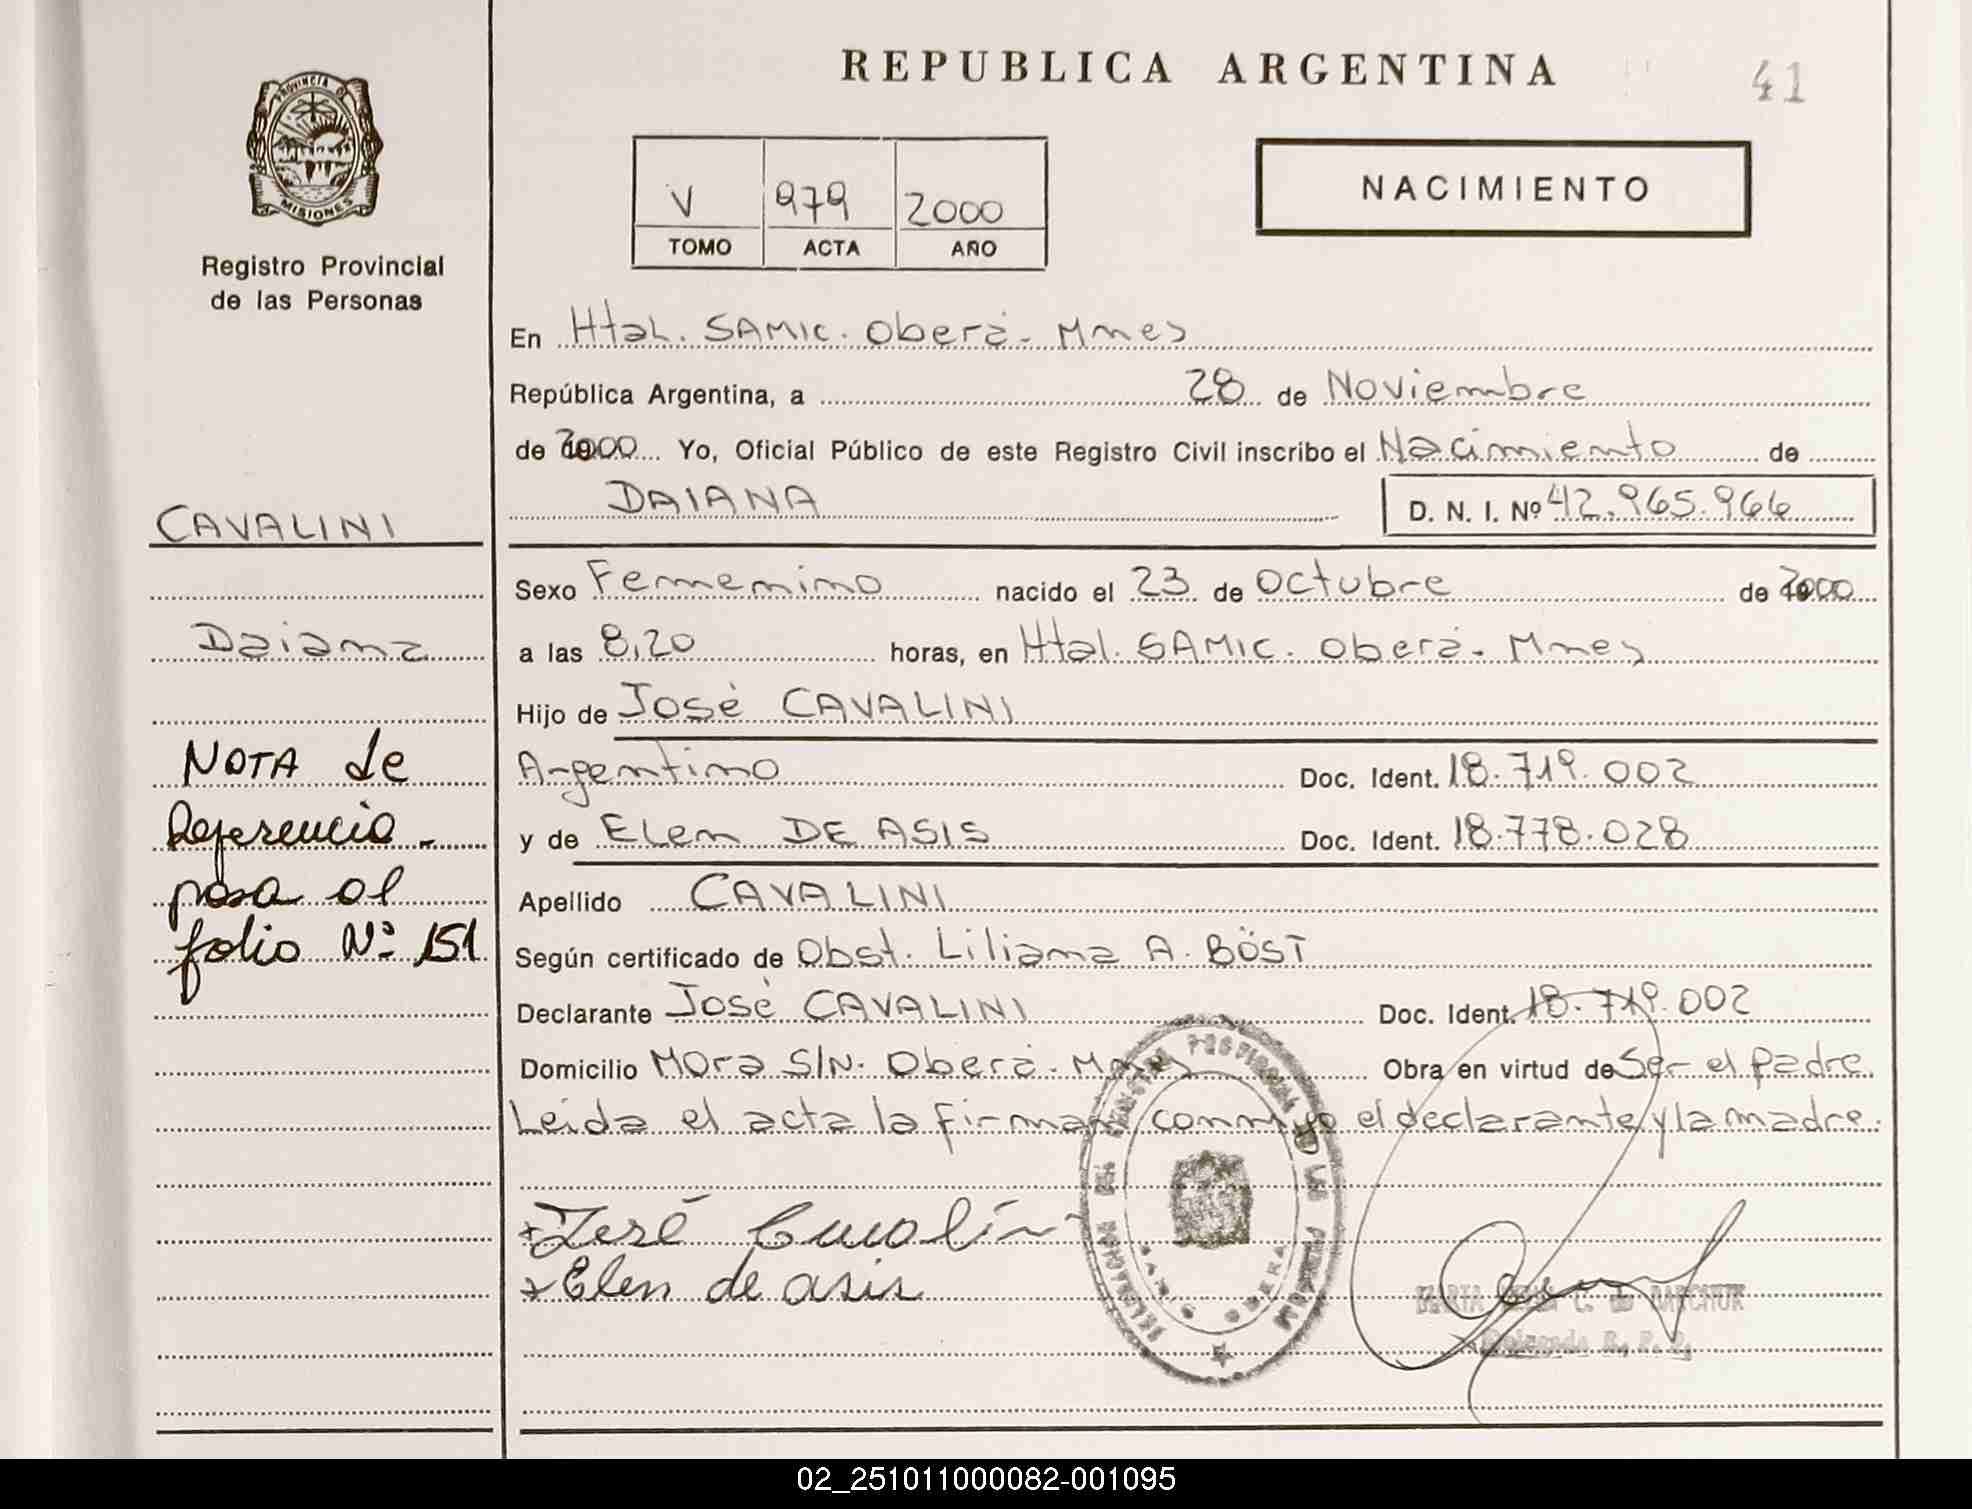 REPUBLICA ARGENTINA
41
PROVINCIA DE
MISIONES
Registro Provincial
de las Personas
V 979 2000
TOMO ACTA AÑO
NACIMIENTO
En Htal. SAMIC. Oberá - Mnes
República Argentina, a 28 de Noviembre
de 2000 Yo, Oficial Público de este Registro Civil inscribo el Nacimiento de
DAIANA
D. N. I. Nº 42.965.966
CAVALINI
Daiana
NOTA de
Referencia -
pasa al
folio Nº 151
Sexo Femenino nacido el 23 de Octubre de 2000
a las 8,20 horas, en Htal. SAMIC. Oberá - Mnes
Hijo de José CAVALINI
Argentino Doc. Ident. 18.719.002
y de ELen DE ASIS Doc. Ident. 18.778.028
Apellido CAVALINI
Según certificado de Obst. Liliana A. BÖST
Declarante José CAVALINI Doc. Ident. 18.719.002
Domicilio Mora S/N. Oberá - Mnes Obra en virtud de Ser el padre
Leida el acta la firman conmigo el declarante y la madre.
José Cavalin
Elen de asis
DELEGACION DEL REGISTRO PROVINCIAL DE LAS PERSONAS
OBERA
MARIA C. de
Delegada R. P. P.
02_251011000082-001095